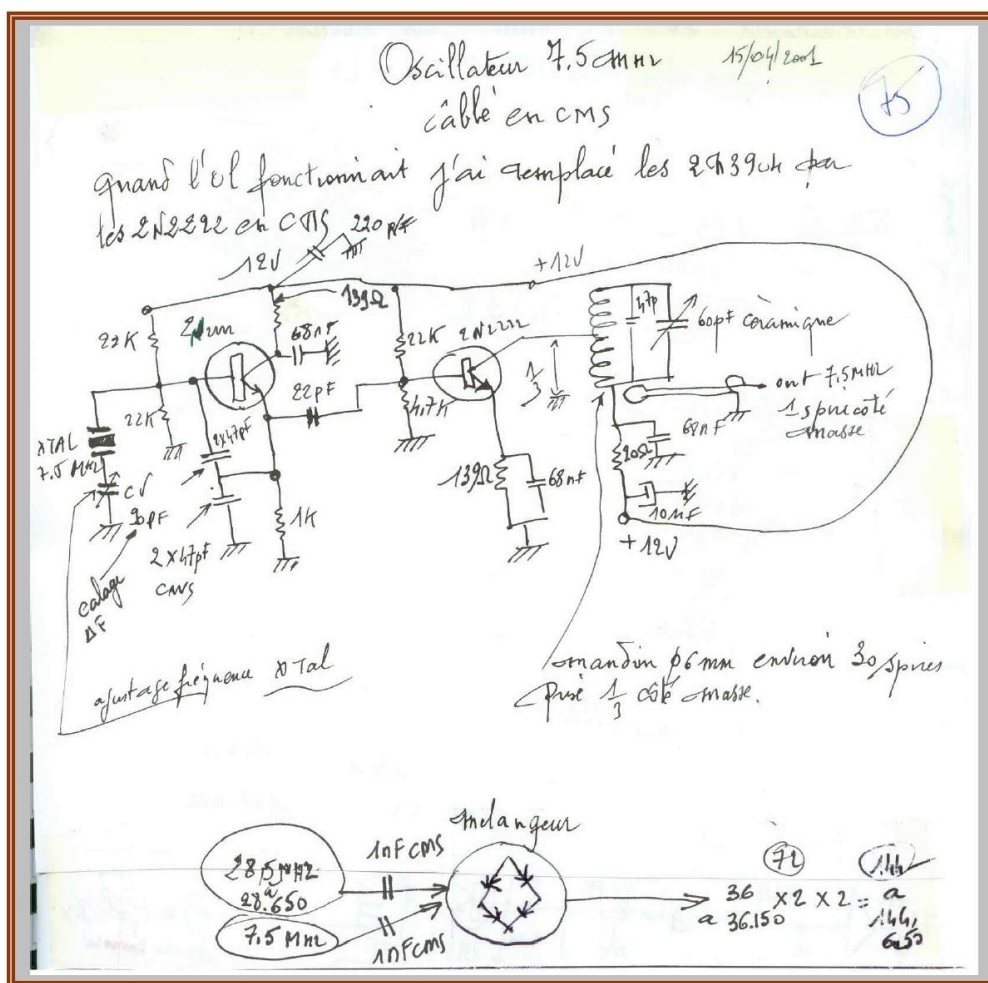 Oscillateur 7.5 MHz 15/04/2001
75
câblé en CMS
quand l'ol fonctionnait j'ai remplacé les 2N3904 par
les 2N2222 en CMS
220 nF
12V
+12V
139Ω
22K
68nF
22K
2N2222
47p
60pF céramique
22pF
1/3
out 7.5MHz
1 spire côté
masse
4,7K
22K
XTAL
7.5 MHz
2x47pF
68nF
20Ω
CV
90pF
139Ω
68nF
1K
10µF
2x47pF
CMS
+12V
calage
ΔF
ajustage fréquence XTal
mandrin ø6mm environ 30 spires
Prise 1/3 côté masse.
mélangeur
28,5MHz
a
28.650
1nF CMS
7.5 MHz
1nF CMS
72
144
36 x2 x2 = a
a 36.150
144,
6050